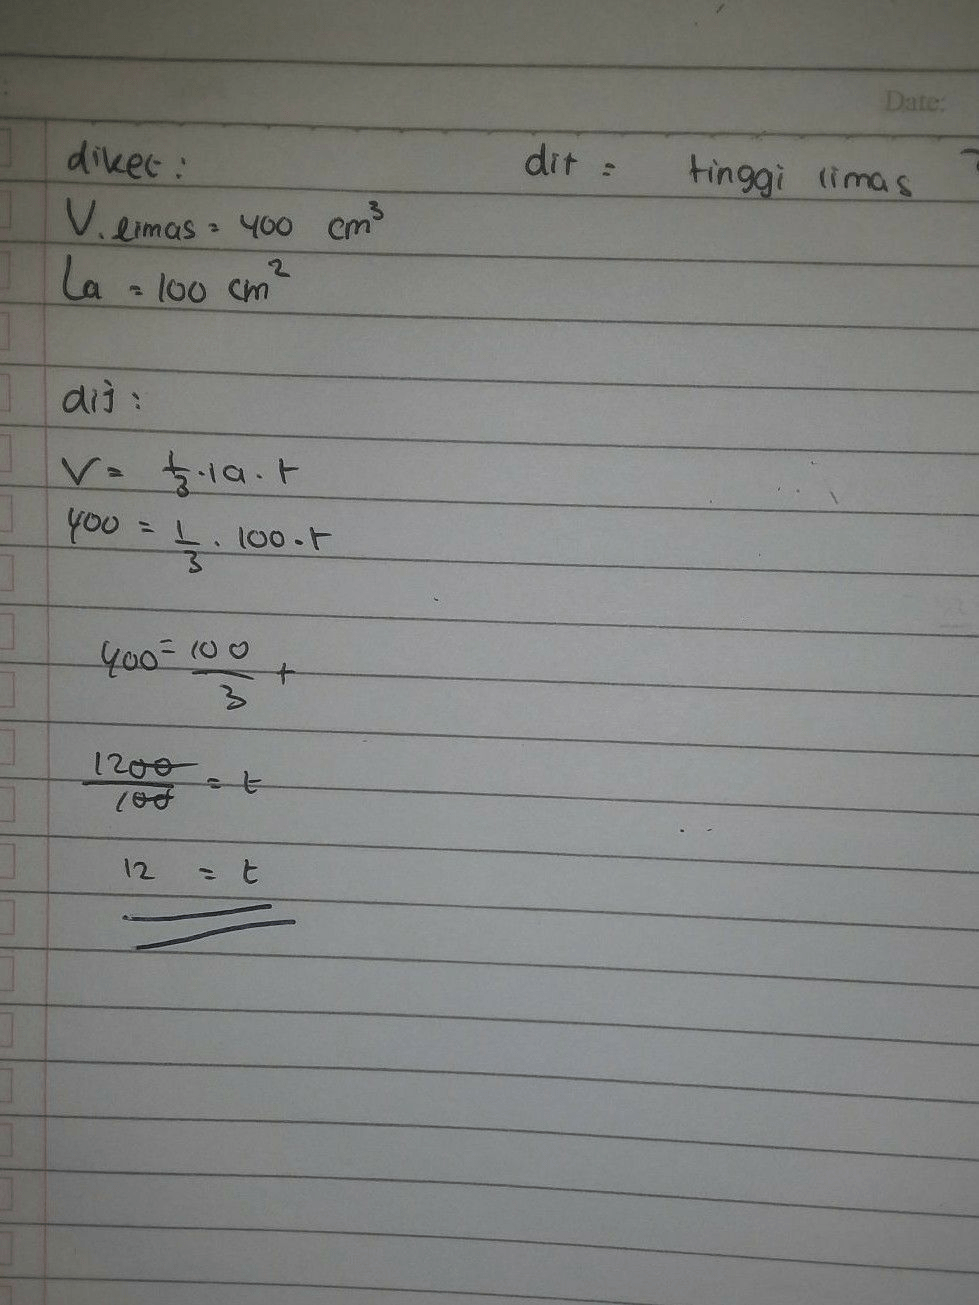 Date:
diket : dit = tinggi limas ?
V. limas = 400 cm³
La = 100 cm²
dij :
V = 1/3 . la . t
400 = 1/3 . 100 . t
400 = 100/3 t
1200/100 = t
12 = t